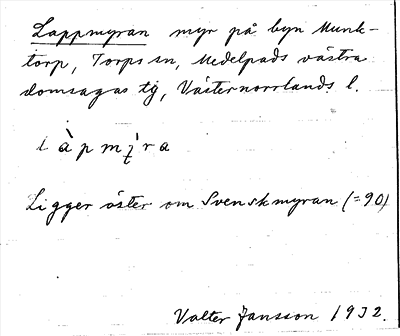 Lappmyran myr på byn Munk-
torp, Torps sn, Medelpads västra
domsagas tg, Västernorrlands l.
l à p m y ̀ r a
Ligger öster om Svenskmyran (=90)
Valter Jansson 1932.